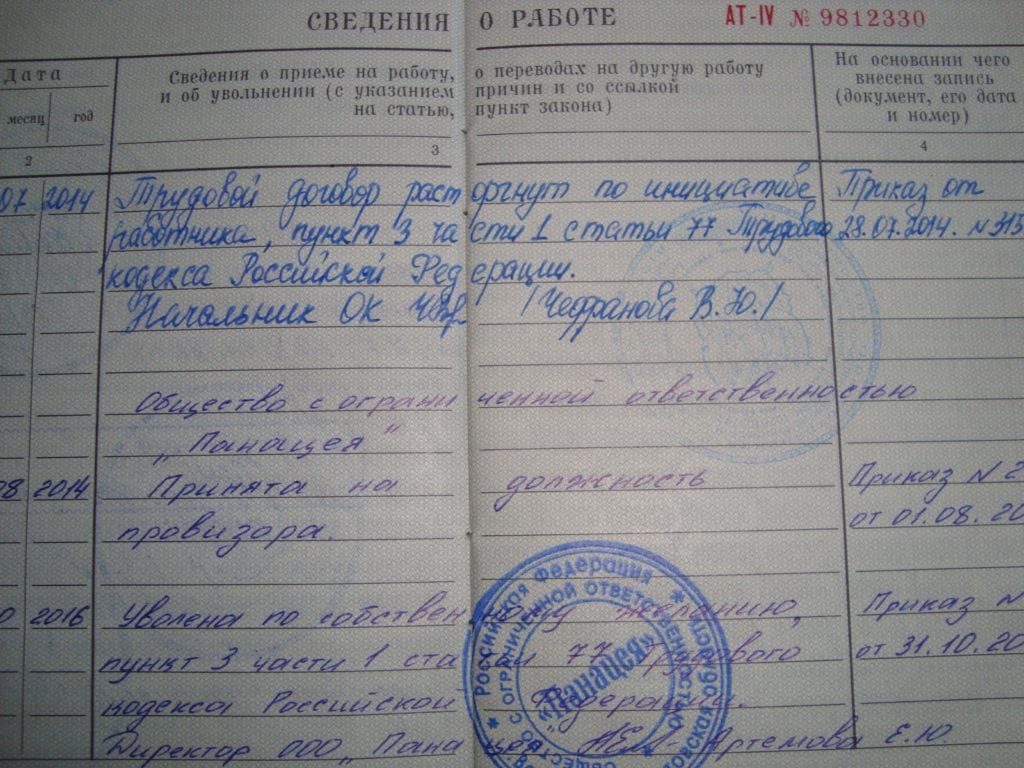 СВЕДЕНИЯ О РАБОТЕ АТ-IV № 9812330
Дата
месяц год
Сведения о приеме на работу, о переводах на другую работу
и об увольнении (с указанием причин и со ссылкой
на статью, пункт закона)
На основании чего
внесена запись
(документ, его дата
и номер)
2 3 4
07 2014 Трудовой договор расторгнут по инициативе Приказ от
работника, пункт 3 части 1 статьи 77 Трудового 28.07.2014. N 315
кодекса Российской Федерации.
Начальник ОК /Чефранова В.Ю./
Общество с ограниченной ответственностью
"Панацея"
08 2014 Принята на должность Приказ N 2
провизора. от 01.08.20
0 2016 Уволена по собственному желанию, Приказ N
пункт 3 части 1 статьи 77 Трудового от 31.10.20
кодекса Российской Федерации.
Директор ООО "Панацея" Артемова Е.Ю.
Российская Федерация
С ОГРАНИЧЕННОЙ ОТВЕТСТВЕННОСТЬЮ
«Панацея»